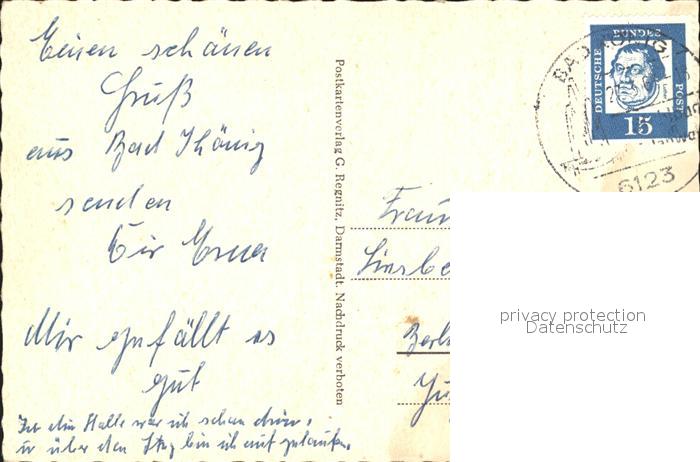 Einen schönen
Gruß
aus Bad König
senden
Dir Erna
Mir gefällt es
gut
In die Halle war ich schon drin,
u über den Steg bin ich auch gelaufen.
Postkartenverlag G. Regnitz, Darmstadt. Nachdruck verboten
DEUTSCHE
BUNDES
POST
15
BAD KÖNIG
6123
Frau
Berl
privacy protection
Datenschutz